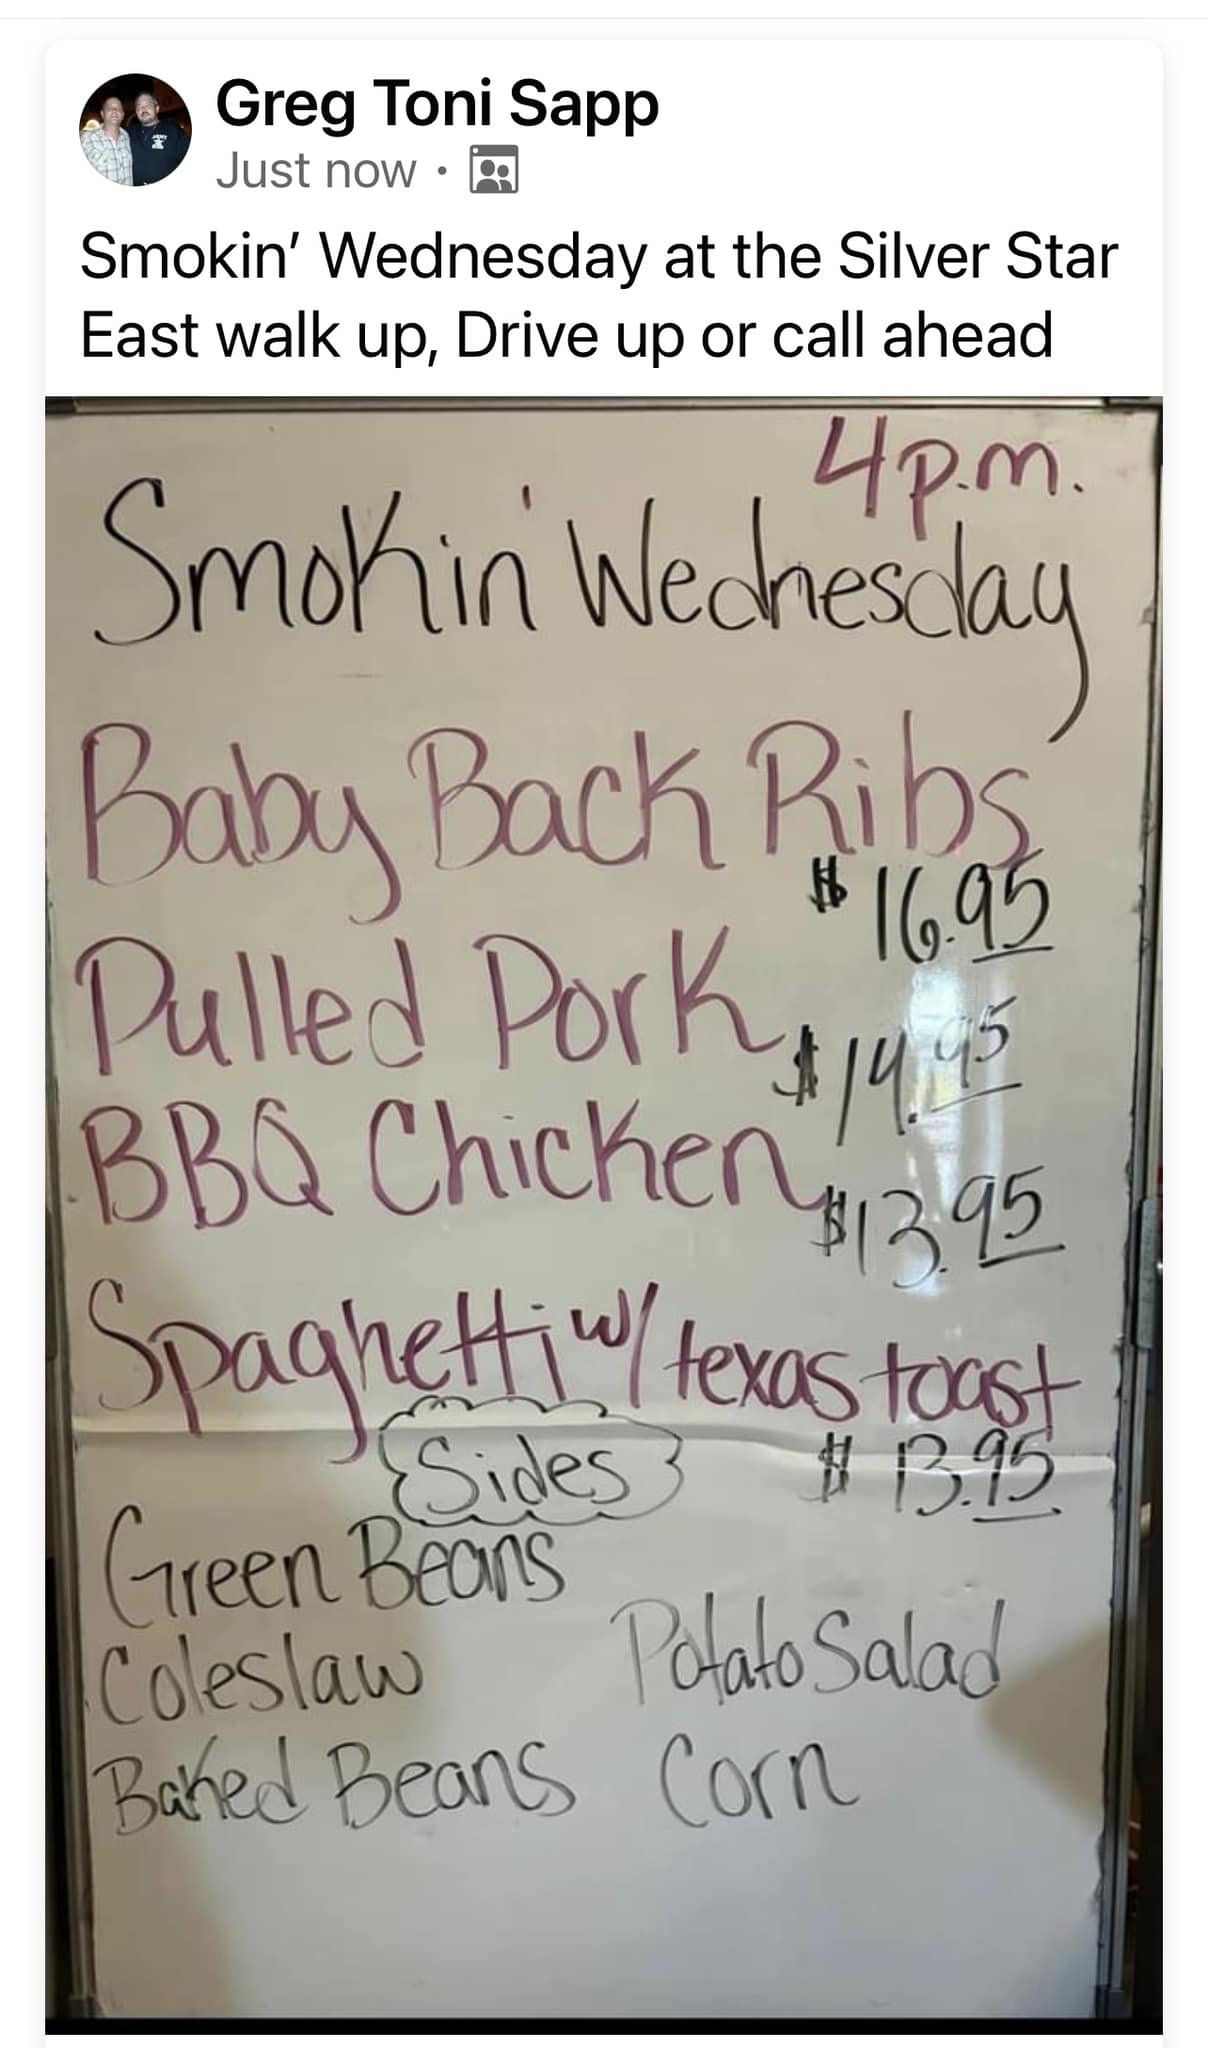 Greg Toni Sapp
Just now ·
Smokin’ Wednesday at the Silver Star
East walk up, Drive up or call ahead
4p.m.
Smokin' Wednesday
Baby Back Ribs
$16.95
Pulled Pork
$14.95
BBQ Chicken
$13.95
Spaghetti w/ texas toast
$13.95
Sides
Green Beans
Coleslaw
Potato Salad
Baked Beans
Corn